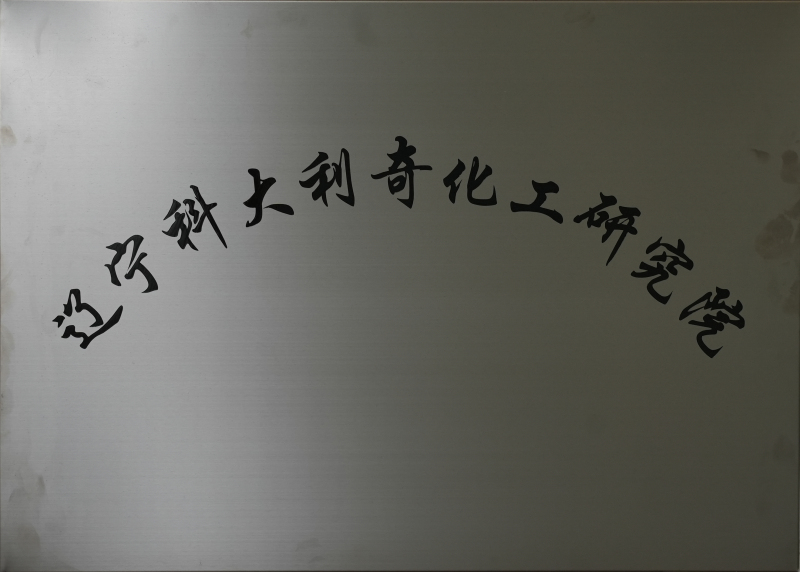 辽宁科大利奇化工研究院